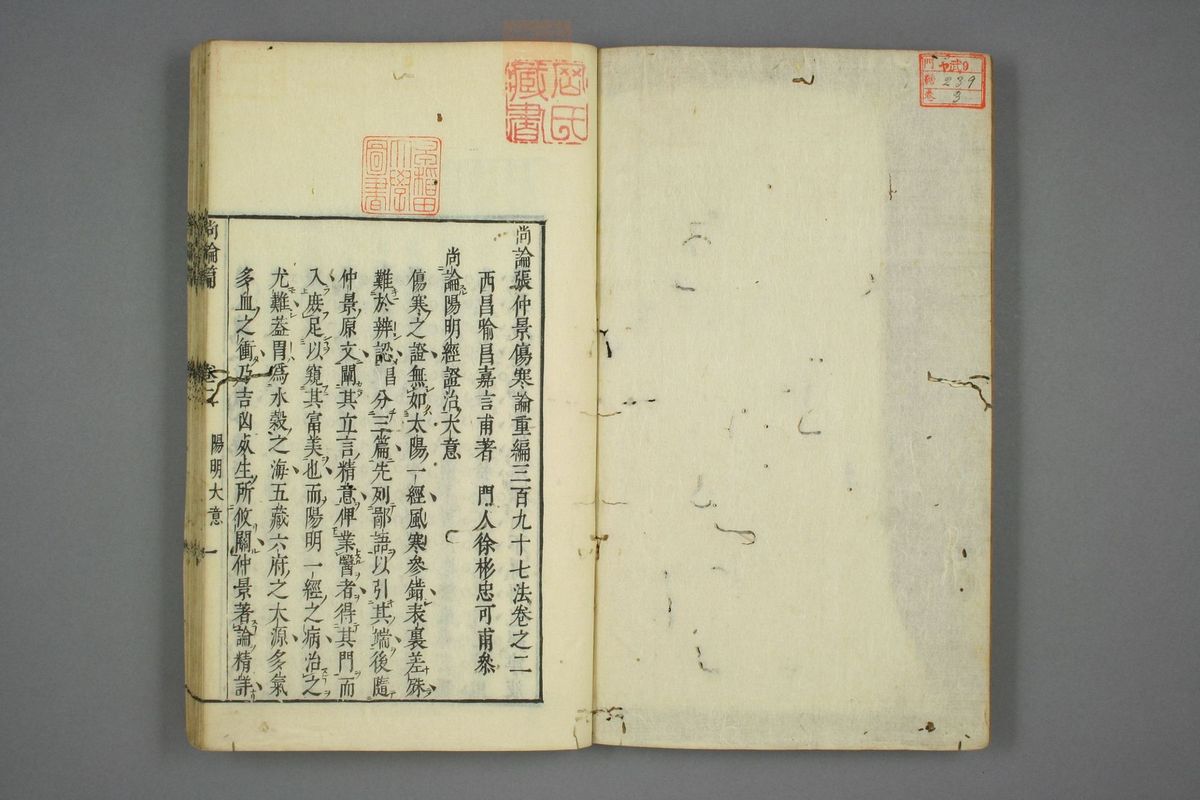 門 ヤ9
號 239
卷 3
藏書
早稲田大學圖書
尚論張仲景傷寒論重編三百九十七法卷之二
西昌喻昌嘉言甫著 門人徐彬忠可甫叅
尚論陽明經證治大意
傷寒之證無如太陽一經風寒參錯表裏差殊
難於辨認昌分三篇先列鄙語以引其端後隨
仲景原文闡其立言精意俾業醫者得其門而
入庶足以窺其富美也而陽明一經之病治之
尤難葢胃爲水穀之海五藏六府之大源多氣
多血之衝乃吉凶死生所攸關仲景著論精詳
尚論篇 卷二 陽明大意 一